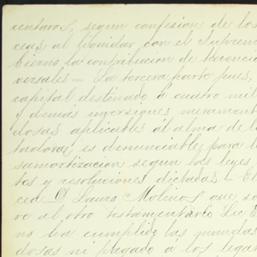 centavos, segun confesion de los
ceas al liquidar, con el Supremo
bierno la contribucion de herencia
versales — La tercera parte pues,
capital destinado á cuatro mil
y demas inversiones meramente
dosas aplicables al alma de la
tadora, es denunciable para la
samortizacion segun las leyes
tos y resoluciones dictadas — El
cea D. Molinos que so
ve al otro testamentario Lic
no ha cumplido las mandas
dosas ni pagado á los legata